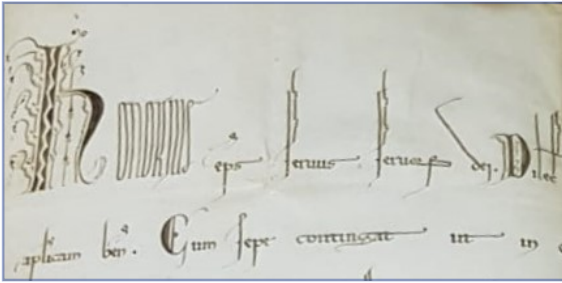 honorius eps seruus seruoꝝ dei. Dilec
aplicam ben. Cum sepe contingat ut in